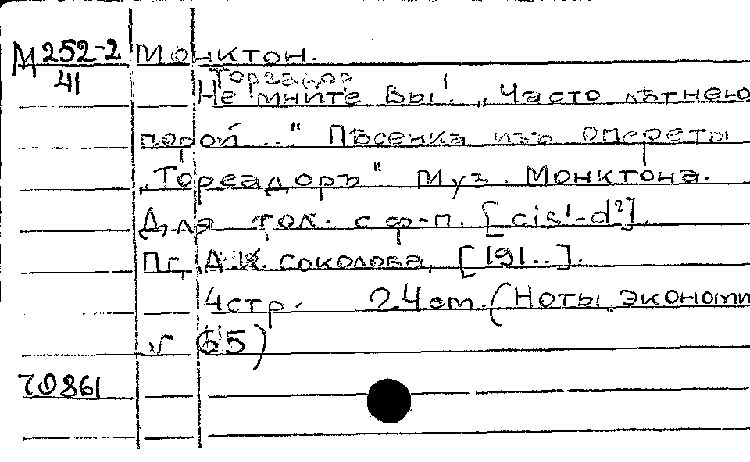 М 252-2 Монктон.
41 Тореадор
Не мните Вы! „Часто лѣтнею
порой..." Пѣсенка изъ опереты
„Тореадоръ" Муз. Монктона.
Для гол. с ф-п. [cis¹-d²].
Пг, А.К. Соколова, [191..].
4стр. 24см. (Ноты экономи
65)
70861